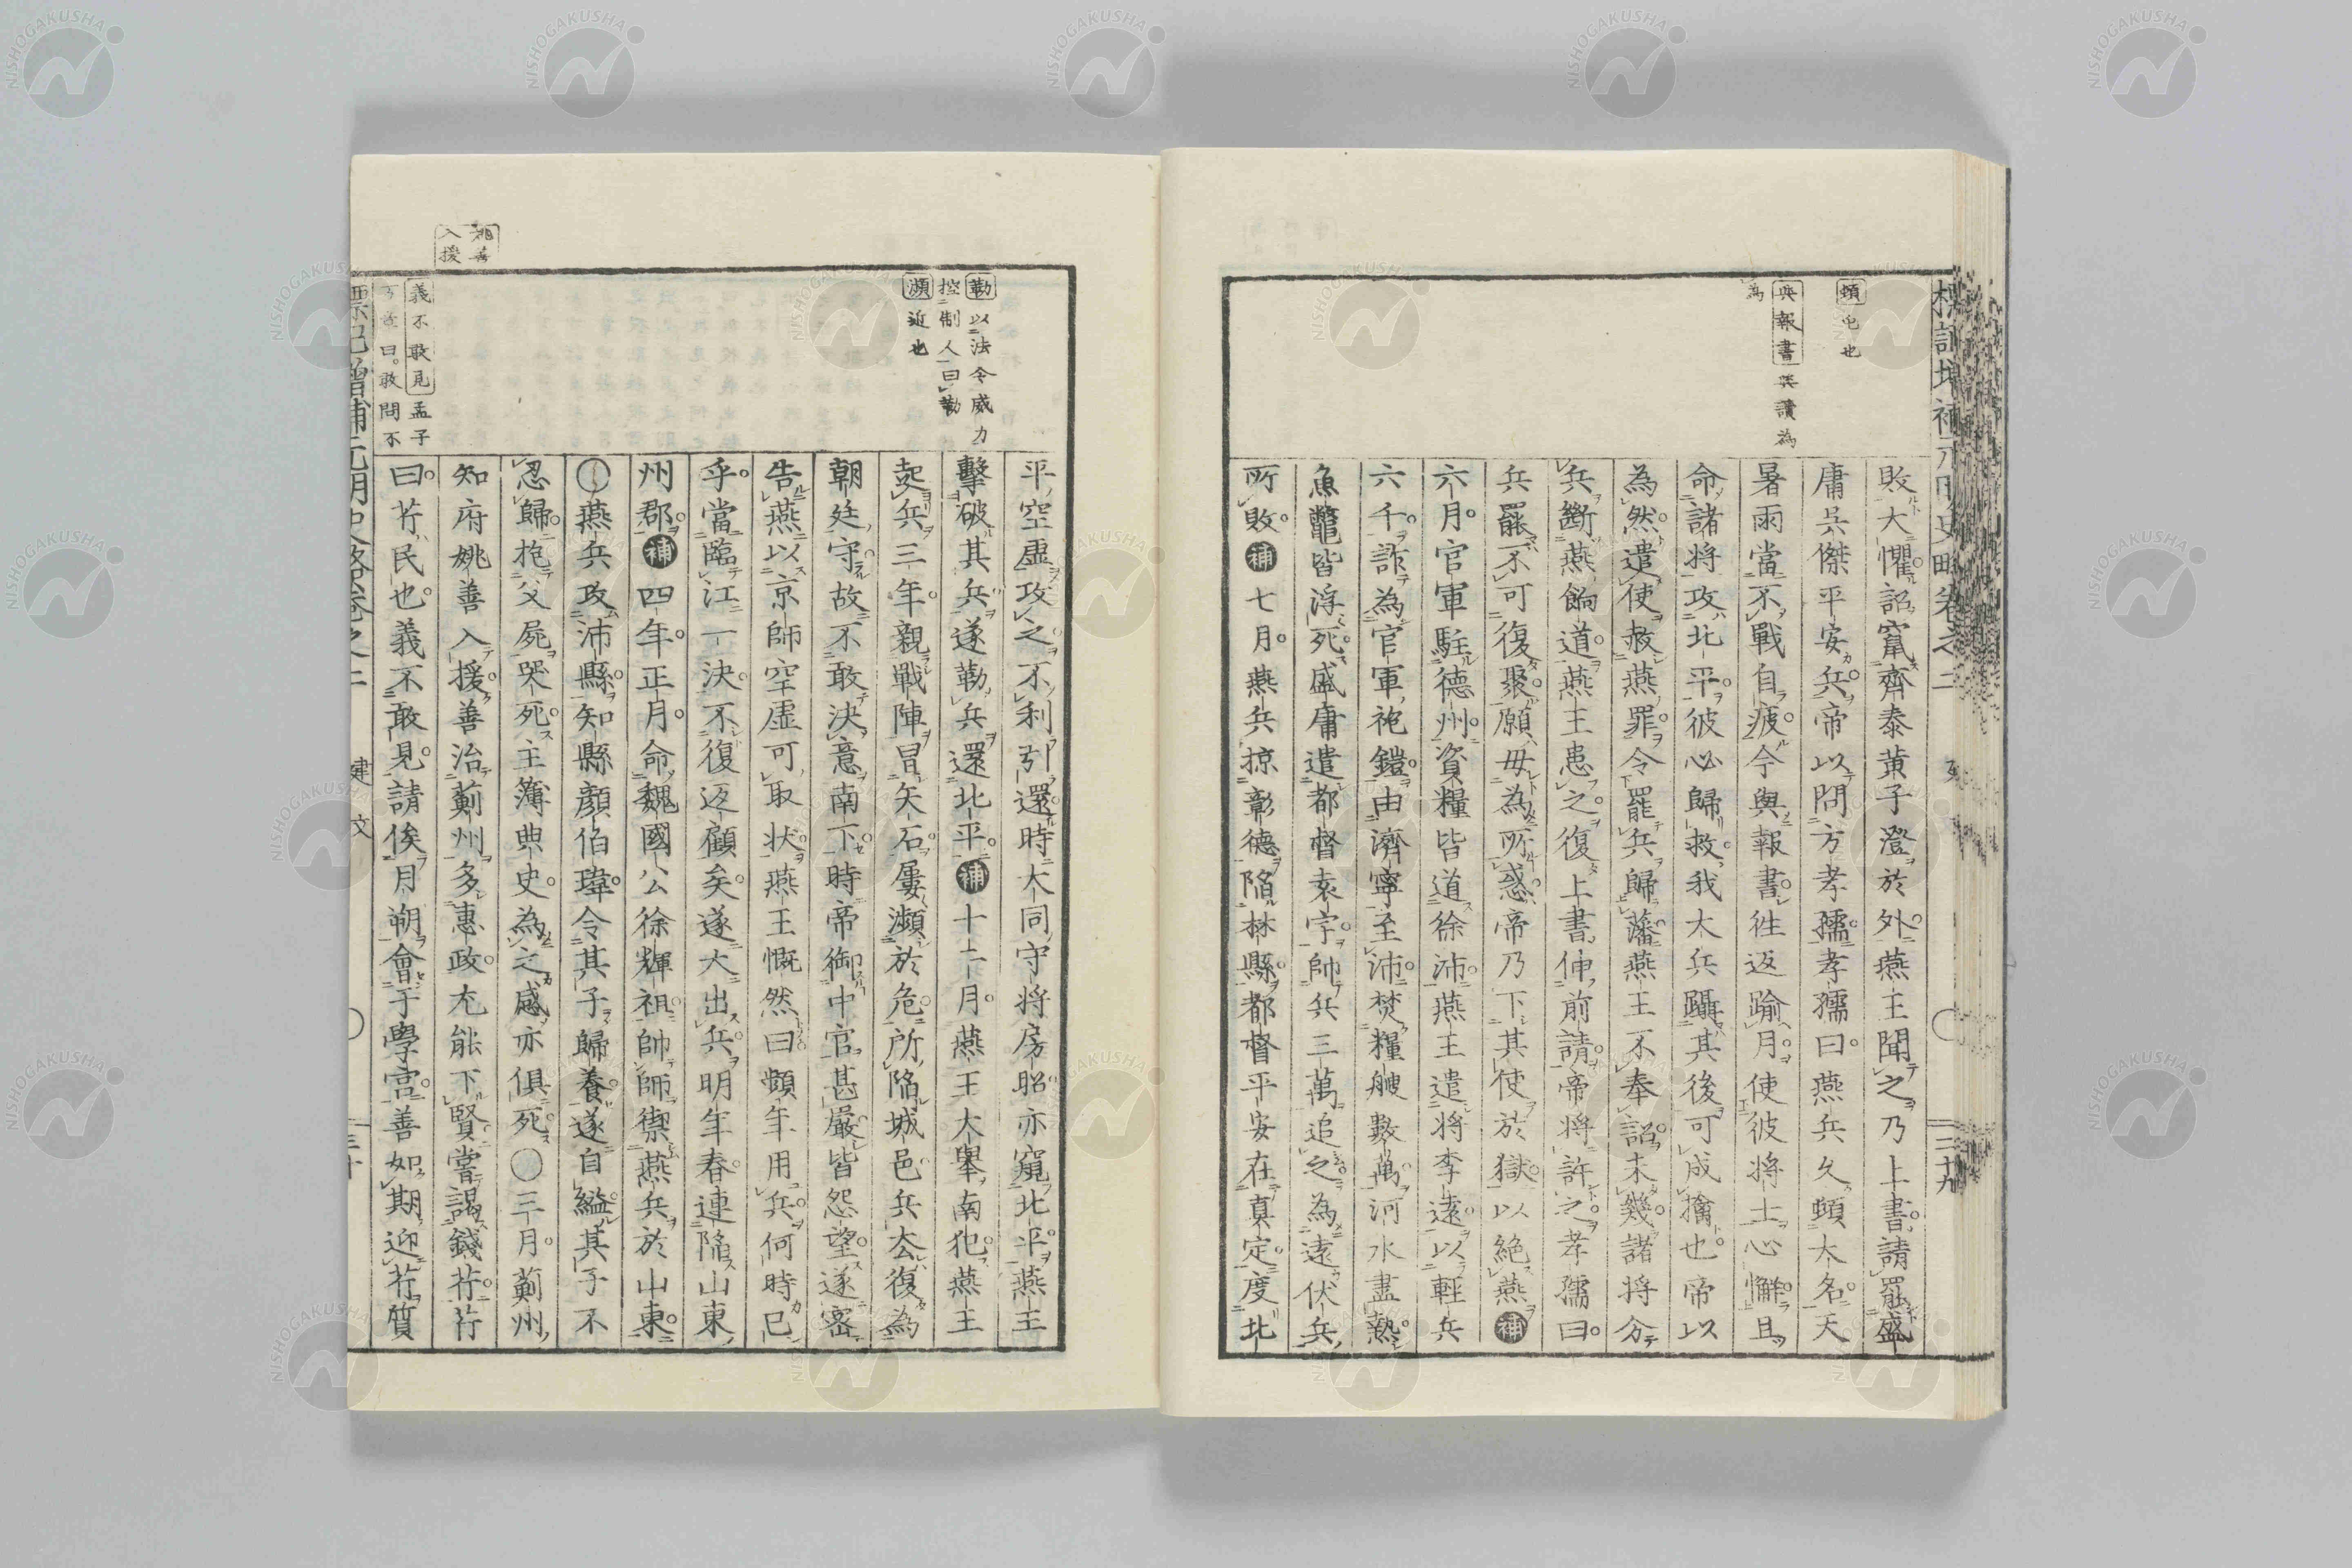 頓屯也
與報書與讀為
為
敗大懼詔竄齊泰黃子澄於外燕王聞之乃上書請罷盛
庸吳傑平安兵帝以問方孝孺孝孺曰燕兵久頓大名天
暑雨當不戰自疲今與報書徃返踰月使彼將士心懈且
命諸將攻北平彼必歸救我大兵躡其後可成擒也帝以
為然遣使赦燕罪令罷兵歸藩燕王不奉詔未幾諸將分
兵斷燕餉道燕王患之復上書伸前請帝將許之孝孺曰
兵罷不可復聚願毋為所惑帝乃下其使於獄以絕燕補
六月官軍駐德州資糧皆道徐沛燕王遣將李遠以輕兵
六千詐為官軍袍鎧由濟寧至沛焚糧艘數萬河水盡熱
魚鼈皆浮死盛庸遣都督袁宇帥兵三萬追之為遠伏兵
所敗補七月燕兵掠彰德陷林縣都督平安在真定度北
勒以法令威力
控制人曰勒
瀕近也
姚善
入援
義不敢見孟子
曰敢問不
平空虛攻之不利引還時大同守將房昭亦窺北平燕王
擊破其兵遂勒兵還北平補十二月燕王大舉南犯燕王
起兵三年親戰陣冒矢石屢瀕於危所陷城邑兵去復為
朝廷守故不敢決意南下時帝御中官甚嚴皆怨望遂密
告燕以京師空虛可取狀燕王慨然曰頻年用兵何時已
乎當臨江一決不復返顧矣遂大出兵明年春連陷山東
州郡補四年正月命魏國公徐輝祖帥師禦燕兵於山東
〇燕兵攻沛縣知縣顏伯瑋令其子歸養遂自縊其子不
忍歸抱父屍哭死主簿典史為之感亦俱死〇三月蘄州
知府姚善入援善治蘄州多惠政尤能下賢嘗謁錢芹芹
曰芹民也義不敢見請俟月朔會于學宮善如期迎芹質